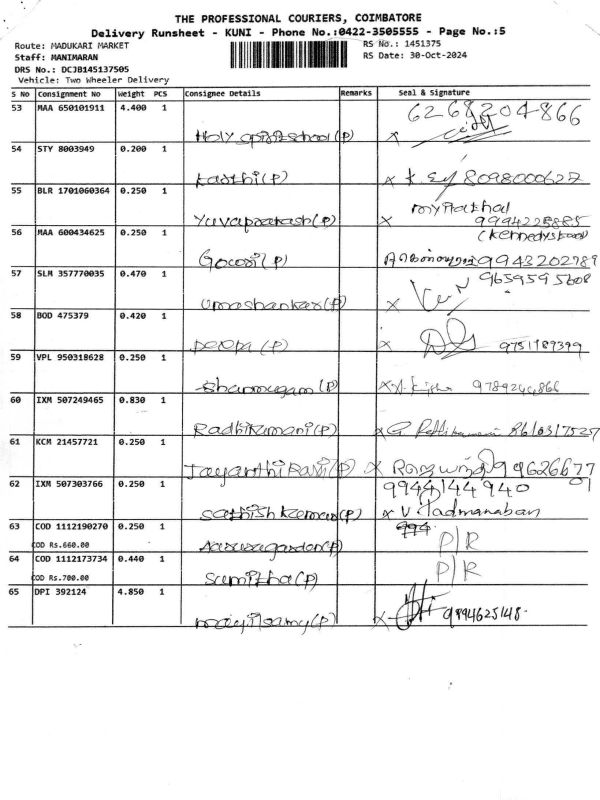 THE PROFESSIONAL COURIERS, COIMBATORE
Delivery Runsheet - KUNI - Phone No.:0422-3505555 - Page No.:5
Route: MADUKARI MARKET
RS No.: 1451375
Staff: MANIMARAN
RS Date: 30-Oct-2024
DRS No.: DCJB145137505
Vehicle: Two Wheeler Delivery
S No Consignment No Weight PCS Consignee Details Remarks Seal & Signature
53 MAA 650101911 4.400 1 6268204866
Holy school(P) x
54 STY 8003949 0.200 1
karthi(P) x 8098000627
55 BLR 1701060364 0.250 1
Yuvaprakash(P) x 9994225885
56 MAA 600434625 0.250 1
Gowri(P) 9943202789
57 SLM 357770035 0.470 1 9659595608
Umashankar(P) x
58 BOD 475379 0.420 1
Deepa (P) x 9751189399
59 VPL 950318628 0.250 1
Shanmugam(P) x 9789244866
60 IXM 507249465 0.830 1
Radhikamani(P) x G 8610317527
61 KCM 21457721 0.250 1
Jayanthi Rani(P) x 99626677
01
62 IXM 507303766 0.250 1 9944144940
Sathish kumar(P) x V. Padmanaban
63 COD 1112190270 0.250 1 994
COD Rs.660.00 (P) P/R
64 COD 1112173734 0.440 1 P/R
COD Rs.700.00 Sumitha(P)
65 DPI 392124 4.850 1
mayilsamy(P) x 9894625148